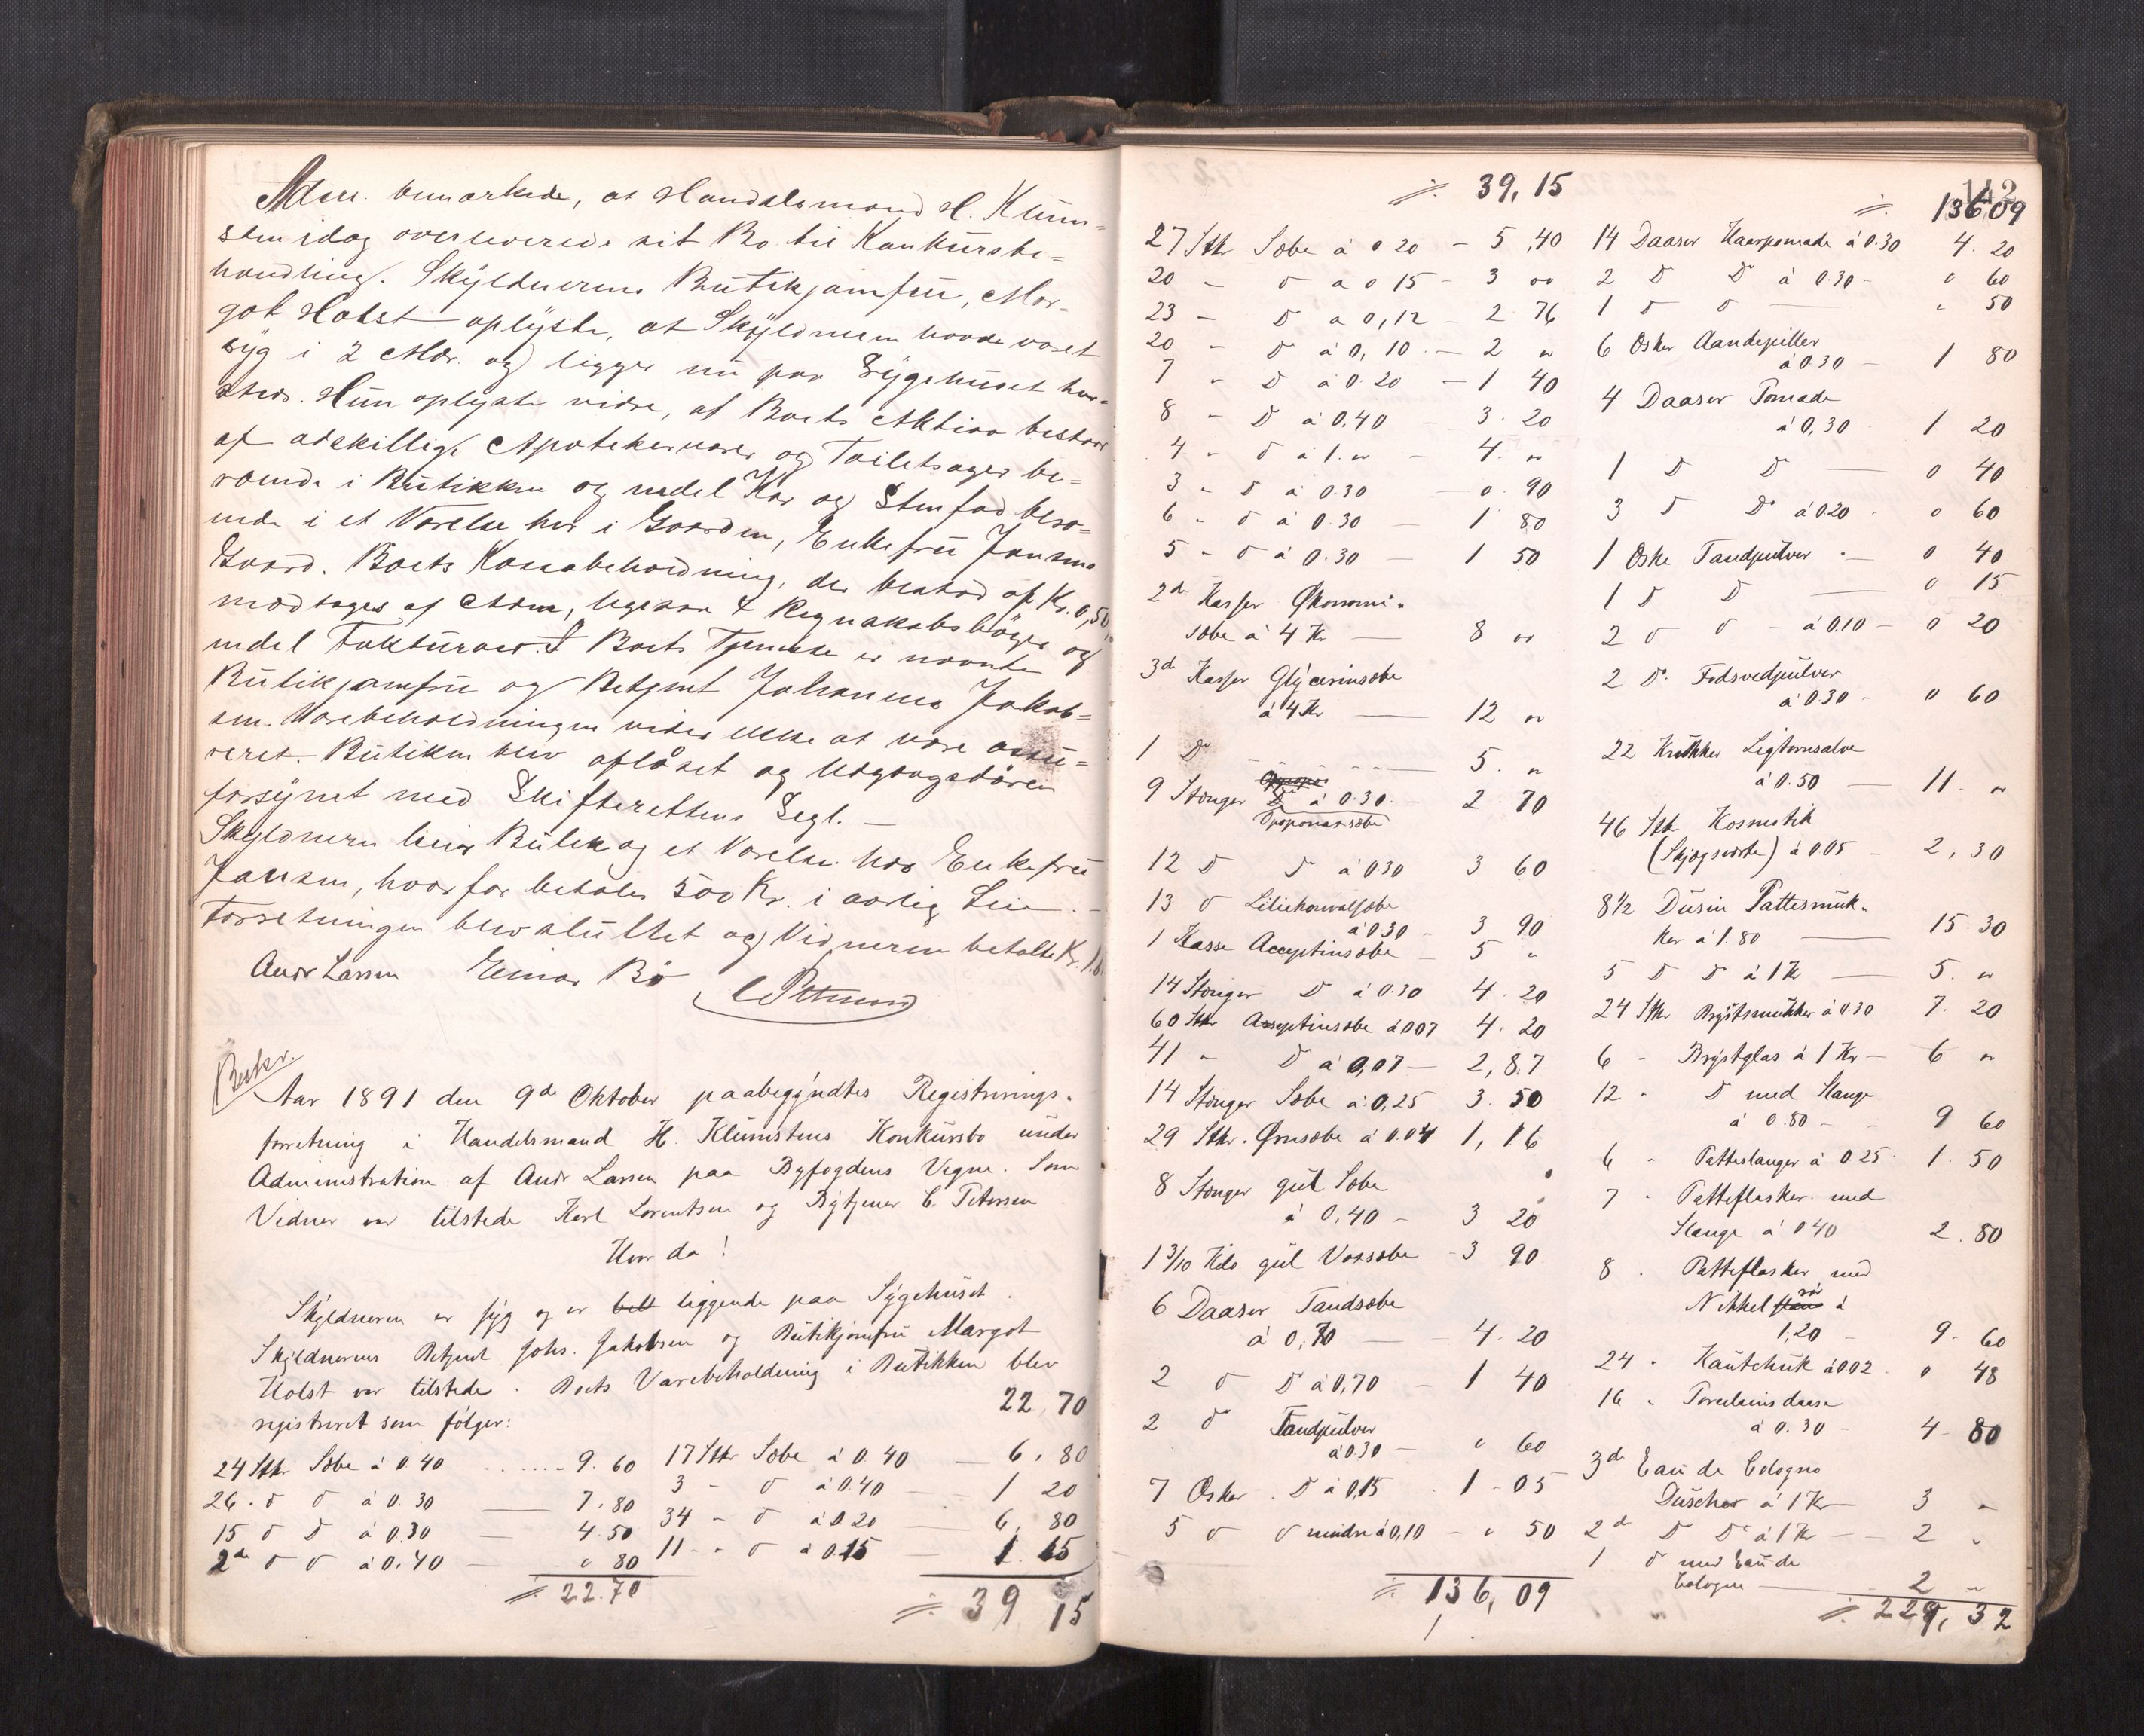 Adm. bemærkede, at Handelsmand H. Klüm-
sten idag overleverede sit Bo til Konkursbe-
handling. Skyldnerens Butikjomfru, Mar-
got Holst oplyste, at Skyldneren havde været
syg i 2 Mdr. og ligger nu paa Sygehuset her-
steds. Hun oplyste videre, at Boets Aktiva bestaar
af adskillige Apotekervarer og Toiletsager be-
roende i Butikken og endel Kar og Stenfad bero-
ende i et Værelse her i Gaarden, Enkefru Jansens
Gaard. Boets Kassabeholdning, der bestod af Kr. 0,50,
modtages af Adm., ligesaa 4 Regnskabsbøger og
endel Fakturaer. I Boets Tjeneste er nævnte
Butikjomfru og Betjent Johannes Jakob-
sen. Varebeholdningen vides ikke at være assu-
reret. Butiken blev aflåset og Udgangsdören
forsynet med Skifterettens Segl. —
Skyldneren leier Butik og et Værelse hos Enkefru
Jansen, hvorfor betales 500 Kr. i aarlig Leie. —
Forretningen blev sluttet og Vidnerne betalte Kr.
Andr Larsen Einar Bö
Aar 1891 den 9de Oktober paabegyndtes Registrerings-
forretning i Handelsmand H. Klümstens Konkursbo under
Administration af Andr Larsen paa Byfogdens Vegne. Som
Vidner var tilstede Karl Lorentsen og Bytjener C. Petersen
Hvor da!
Skyldneren er syg og er liggende paa Sygehuset.
Skyldnerens Betjent Johs. Jakobsen og Butikjomfru Margot
Holst var tilstede. Boets Varebeholdning i Butikken blev
registreret som følger:
22,70
24 Stkr Sæbe à 0.40 ...... 9.60
26 - D D à 0.30 — 7.80
15 D D à 0.30 — 4.50
2de D D à 0.40 — " 80
22.70
17 Stkr Sæbe à 0.40 — 6.80
3 - D à 0.40 — 1 20
34 - D à 0.20 — 6.80
11 - D à 0.15 — 1 65
39 15
142
39,15
27 Stkr Sæbe à 0 20 - 5,40
20 - D à 0 15 - 3 00
23 - D à 0,12 - 2 76
20 - D à 0,10 - 2 "
7 - D à 0.20 - 1 40
8 - D à 0.40 - 3.20
4 - D à 1." - 4. "
3 - D à 0.30 - 0.90
6 - D à 0.30 1 80
5 - D à 0.30 — 1 50
2de Kasser Økonomi-
sæbe à 4 Kr — 8 00
3de Kasser Glycerinsæbe
à 4 Kr — 12 "
1 Do — 5. "
9 Stænger D à 0.30 - 2 70
Opoponaxsæbe
12 D D à 0.30 3 60
13 D Liliekonvalsæbe
à 0.30 - 3 90
1 Kasse Aseptinsæbe - 5 "
14 Stænger D à 0.30 4.20
60 Stkr Aseptinsæbe à 0.07 4.20
41 - D à 0,07 - 2,87
14 Stænger Sæbe à 0,25 3.50
29 Stkr. Ørnsæbe à 0.04 1,16
8 Stænger gul Sæbe
à 0,40 - 3 20
1 3/10 Kilo gul Voxsæbe - 3 90
6 Daaser Tandsæbe
à 0,70 — 4.20
2 D D à 0,70 - 1 40
2 Do Tandpulver
à 0.30 - " 60
7 Esker D à 0,15 1 - 05
5 D D mindre à 0,10 - " 50
136,09
136 09
14 Daaser Haarpomade à 0.30 4.20
2 D D à 0.30 - 0 60
1 D D — " 50
6 Esker Aandepiller
à 0.30 - 1 80
4 Daaser Pomade
à 0,30 1 20
1 D D — 0 40
3 D Do à 0.20 - 0 60
1 Eske Tandpulver - 0 40
1 D D — 0 15
2 D D - à 0.10 - 0 20
2 D. Fodsvedpulver
à 0.30 - 0 60
22 Krukker Ligtornsalve
à 0.50 — 11 - "
46 Stk Kosmetik
(Skjægvoks) à 0.05 - 2,30
8 1/2 Dusin Pattesmuk-
ker à 1.80 — 15.30
5 D D à 1 Kr — 5. "
24 Stkr Brystsmukker à 0.30 7.20
6 - Brystglas à 1 Kr - 6 "
12 - D med Slange
à 0.80 - 9 60
6 - Patteslanger à 0.25 1.50
7 - Patteflasker med
Slange à 0.40 2.80
8 - Patteflasker med
Nikkelrør à
1,20 - 9.60
24 - Kautchuk à 0.02 0 48
16 - Porcelainsdaase
à 0.30 - 4 - 80
3de Eau de Cologne
Duscher à 1 Kr — 3 "
2de D Do à 1 Kr — 2 "
1 Do med Eau de
Cologne — 2 "
229,32